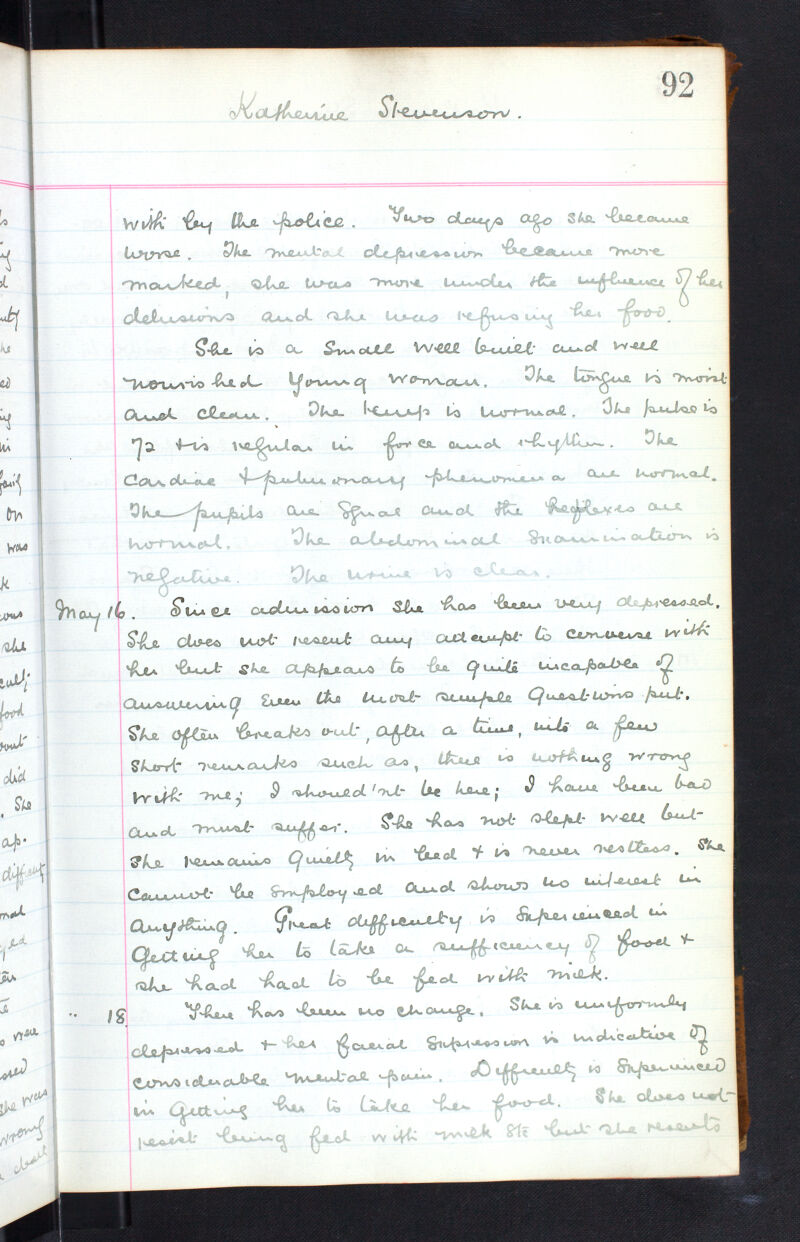 92
Katherine Stevenson.
with by the police. Two days ago she became
worse. The mental depression became more
marked, she was more under the influence of her
delusions and she was refusing her food.
She is a small well built and well
nourished young woman. The tongue is moist
and clean. The temp is normal. The pulse is
72 + is regular in force and rhythm. The
cardiac + pulmonary phenomena are normal.
The pupils are equal and the reflexes are
normal. The abdominal examination is
negative. The urine is clear.
May 16. Since admission she has been very depressed.
She does not resent any attempt to converse with
her but she appears to be quite incapable of
answering even the most simple questions put.
She often breaks out, after a time, into a few
short remarks such as, there is nothing wrong
with me; I should'nt be here; I have been bad
and must suffer. She has not slept well but
she remains quietly in bed + is never restless. She
cannot be employed and shows no interest in
anything. Great difficulty is experienced in
getting her to take a sufficiency of food +
she had had to be fed with milk.
" 18. There has been no change. She is uniformly
depressed + her facial expression is indicative of
considerable mental pain. Difficulty is experienced
in getting her to take her food. She does not
resist being fed with milk etc but she resents